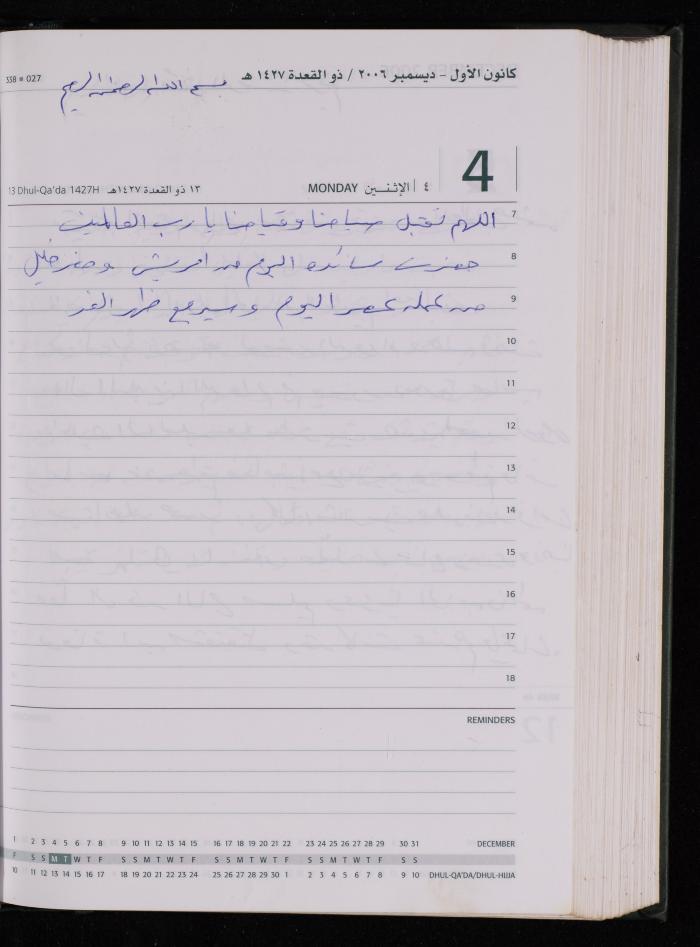 كانون الأول - ديسمبر ٢٠٠٦ / ذو القعدة ١٤٢٧ هـ
338 027
بسم الله الرحمن الرحيم
4
٤ الإثنين MONDAY
١٣ ذو القعدة ١٤٢٧هـ 13 Dhul-Qa'da 1427H
7 اللهم تقبل صيامنا وقيامنا يا رب العالمين
8 حضرت ساندة اليوم من وحضر خليل
9 من عمله عصر اليوم وسيرجع ظهر الغد
10
11
12
13
14
15
16
17
18
REMINDERS
1 2 3 4 5 6 7 8 9 10 11 12 13 14 15 16 17 18 19 20 21 22 23 24 25 26 27 28 29 30 31 DECEMBER
F S S M T W T F S S M T W T F S S M T W T F S S M T W T F S S
10 11 12 13 14 15 16 17 18 19 20 21 22 23 24 25 26 27 28 29 30 1 2 3 4 5 6 7 8 9 10 DHUL-QA'DA/DHUL-HIJJA